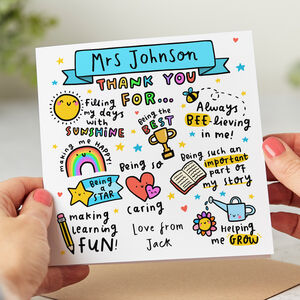 Mrs Johnson
THANK YOU
FOR...
filling
my days
with
SUNSHINE
Being the
BEST
Always
BEE-lieving
in me!
making me HAPPY
Being so
caring
Being such an
important
part of
my story
Being
a
STAR
making
learning
FUN!
Love from
Jack
Helping
me GROW